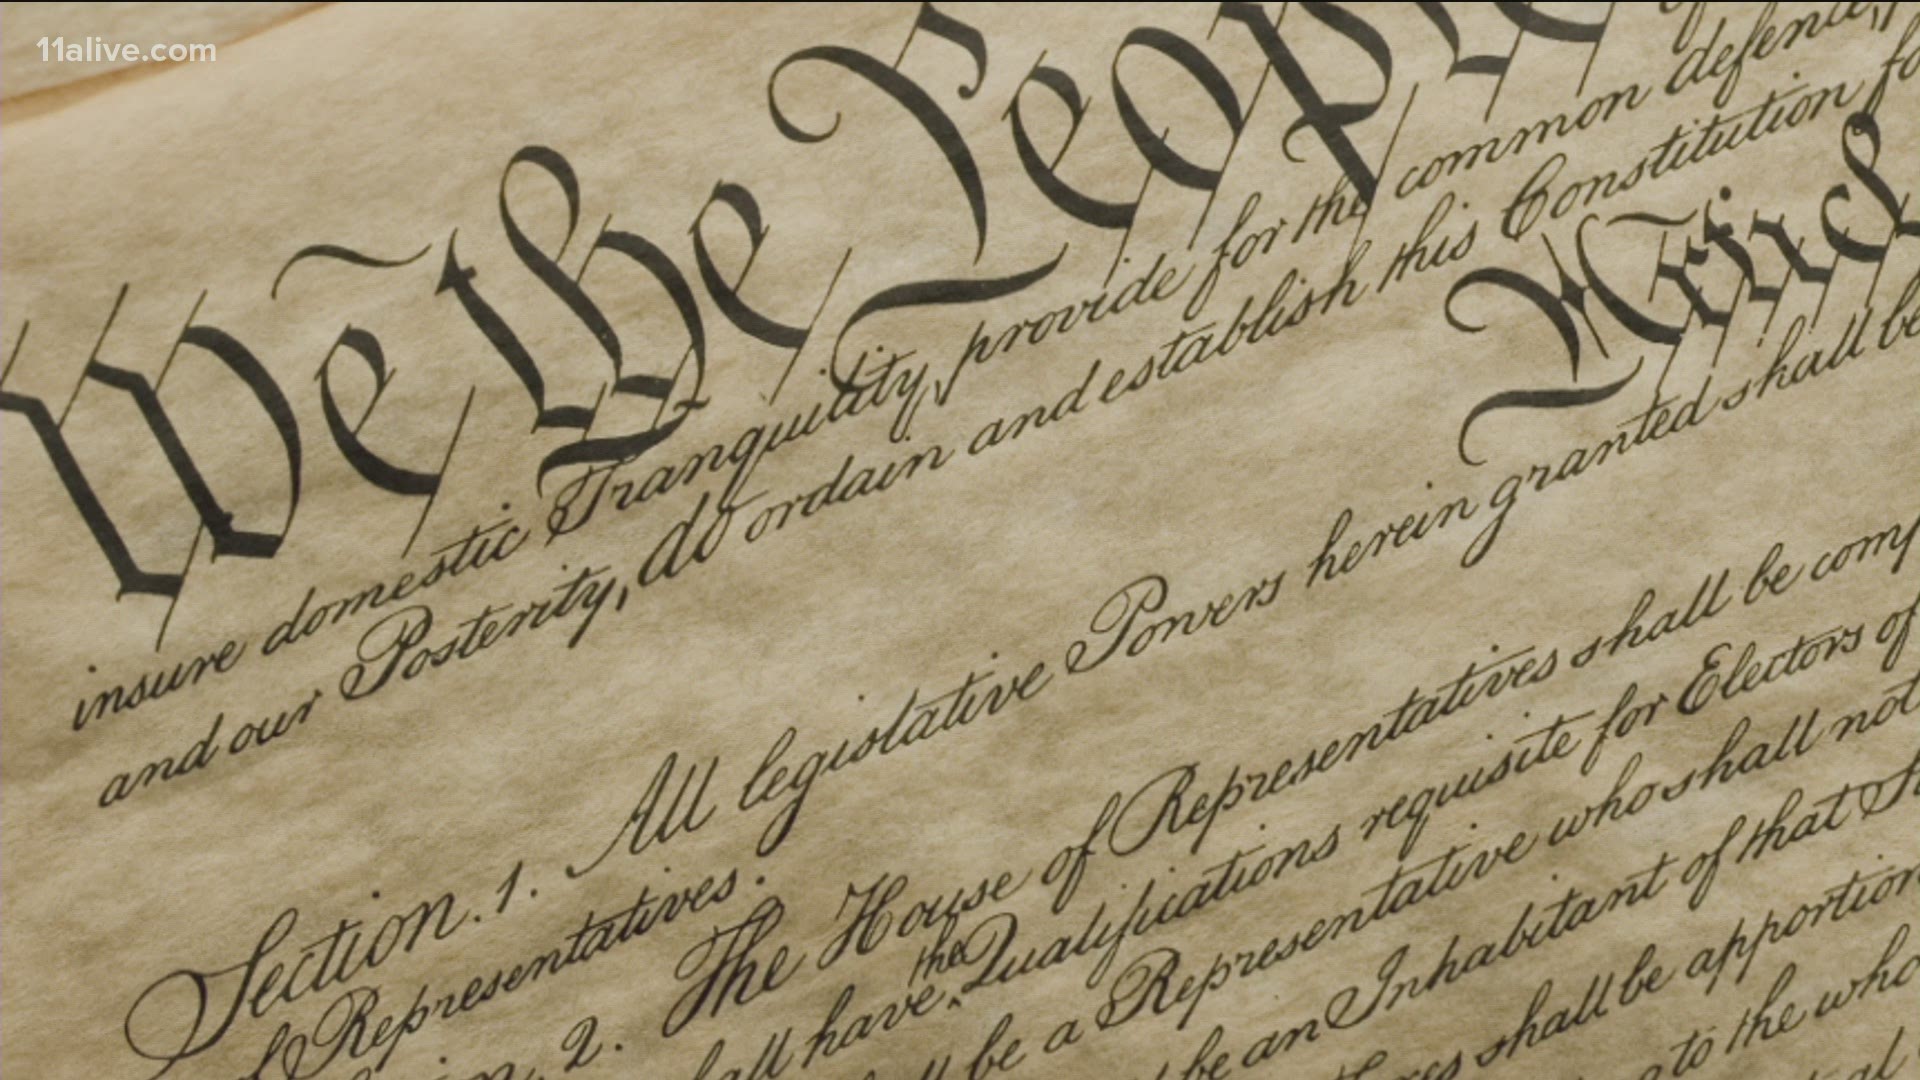 11alive.com
We the People
insure domestic Tranquility, provide for the common defence,
and our Posterity, do ordain and establish this Constitution
Section. 1. All legislative Powers herein granted shall be
Representatives.
2. The House of Representatives shall be
have the Qualifications requisite for Electors of
be a Representative who shall not
be an Inhabitant of that
shall be
to the